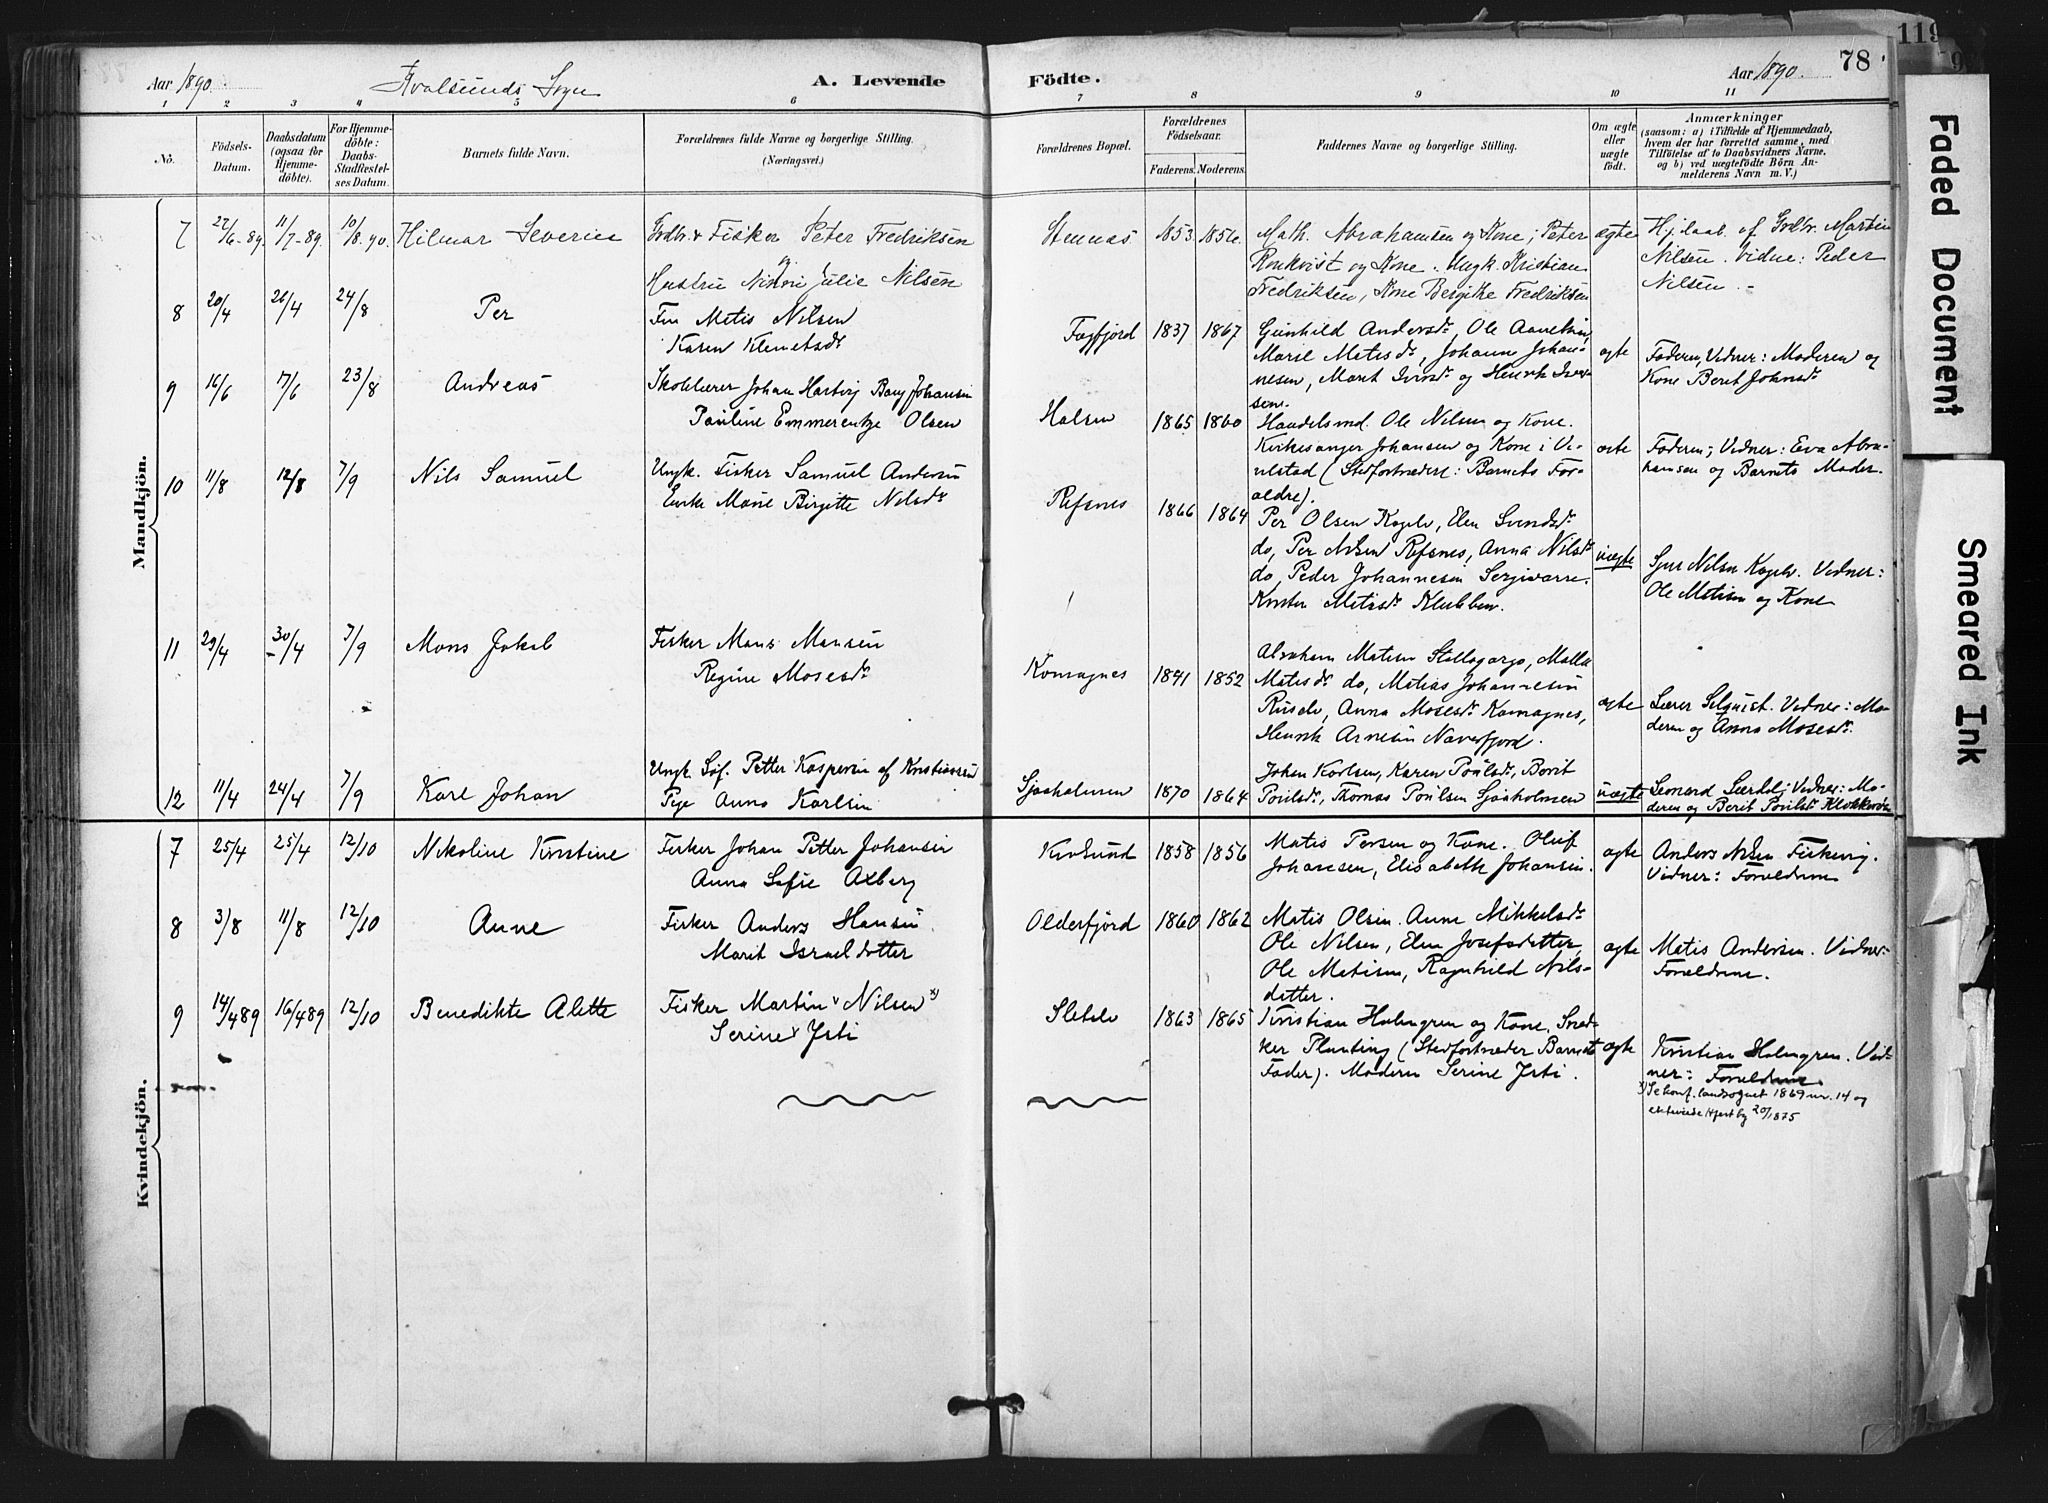 Aar 1890.
Kvalsunds Sogn
A. Levende
Födte.
Aar 1890.
78
119
Faded Document
Smeared Ink
1 2 3 4 5 6 7 8 9 10 11
Nö.
Födsels-
Datum.
Daabsdatum
(ogsaa for
Hjemme-
döbte).
For Hjemme-
döbte:
Daabs-
Stadfæstel-
ses Datum.
Barnets fulde Navn.
Forældrenes fulde Navne og borgerlige Stilling.
(Næringsvei.)
Forældrenes Bopæl.
Forældrenes
Födselsaar.
Faderens. Moderens.
Faddernes Navne og borgerlige Stilling.
Om ægte
eller
uægte
födt.
Anmærkninger
(saasom: a) i Tilfælde af Hjemmedaab,
hvem der har forrettet samme, med
Tilföielse af to Daabsvidners Navne,
og b) ved uægtefödte Börn An-
melderens Navn m. V.)
Mandkjön.
7 22/6-89. 11/7-89. 10/8.90. Hilmar Severin
Fisker Peter Fredriksen
Hustru Julie Nilsen
1853. 1856.
Math. Abrahamsen og Kone; Peter
Ronkvist og Kone. Ungk. Kristian
Fredriksen, Kone Bergithe Fredriksen
ægte
Hj.daab. af Grdbr. Martin
Nilsen. Vidne: Peder
Nilsen.
8 20/4 26/4 24/8 Per
Fin Matis Nilsen
Karen Klemetsdr
Fægfjord 1837 1867
Gunhild Andersdr, Ole
Marie Matisdr, Johann Johan-
nesen, Marit Iversdr og Henrik Iver-
sen.
ægte
Faderen, Vidner: Moderen og
Kone Berit Johnsdr
9 16/6 17/6 23/8 Andreas
Skolelærer Johan Hartvig Bang Johansen
Pauline Emmerentze Olsen
Halsen 1865 1860
Handelsmd. Ole Nilsen og Kone.
Kirkesanger Johansen og Kone i Ve-
velstad (Stedfortrædere: Barnets For-
ældre).
ægte
Faderen; Vidner: Eva Abra-
hamsen og Barnets Moder.
10 11/8 12/8 7/9 Nils Samuel
Ungk. Fisker Samuel Andersen
Enke Marie Birgitte Nilsdr
Refsnes 1866 1864
Per Olsen Kogelv, Elen Svendsdr
do, Per Nilsen Refsnes, Anna Nilsdr
do, Peder Johannesen
Matisdr Klubben.
uægte
Nilsen Kogelv. Vidner:
Ole Matisen og Kone
11 29/4 30/4 7/9 Mons Jakob
Fisker Mons Monsen
Regine Mosesdr
Komagnes 1841 1852
Abraham Matisen Stallogargo,
Matisdr do, Matias Johannesen
Anna Mosesdr Komagnes,
Henrik Arnesen
ægte
Lærer Selqvist. Vidner: Mo-
deren og Anna Mosesdr.
12 11/4 24/4 7/9 Karl Johan
Ungk. Søf. Petter Kaspersen af Kristianssund
Pige Anna Karlsen
Sjøaholmen 1870 1864
Johan Karlsen, Karen Poulsdr, Berit
Poulsdr, Thomas Poulsen Sjøaholmen
uægte
Leonard Vidner: Mo-
deren og Berit Poulsdr
Kvindekjön.
7 25/4 25/4 12/10 Nikoline Kristine
Fisker Johan Petter Johansen
Anna Sofie Axberg
Kvalsund 1858 1856
Matis Persen og Kone. Oluf
Johansen, Elisabeth Johansen.
ægte
Anders Nilsen
Vidner: Forældrene
8 3/8 11/8 12/10 Anne
Fisker Anders Hansen.
Marit Israelsdatter
Olderfjord 1860 1862
Matis Olsen. Anne Mikkelsdr
Ole Nilsen, Elen Josefsdatter,
Ole Matisen, Ragnhild Nils-
datter.
ægte
Matis Andersen. Vidner:
Forældrene.
9 14/489 16/489 12/10 Benedikte Alette
Fisker Martin Nilsen x)
Serine Isti
1863 1865
Kristian Holmgren og Kone. Sned-
ker Planting (Stedfortræder Barnets
Fader). Moderen Serine Isti.
ægte
Kristian Holmgren. Vid-
ner: Forældrene
x) Se konf. landsognet 1869 nr. 14 og
20/1875